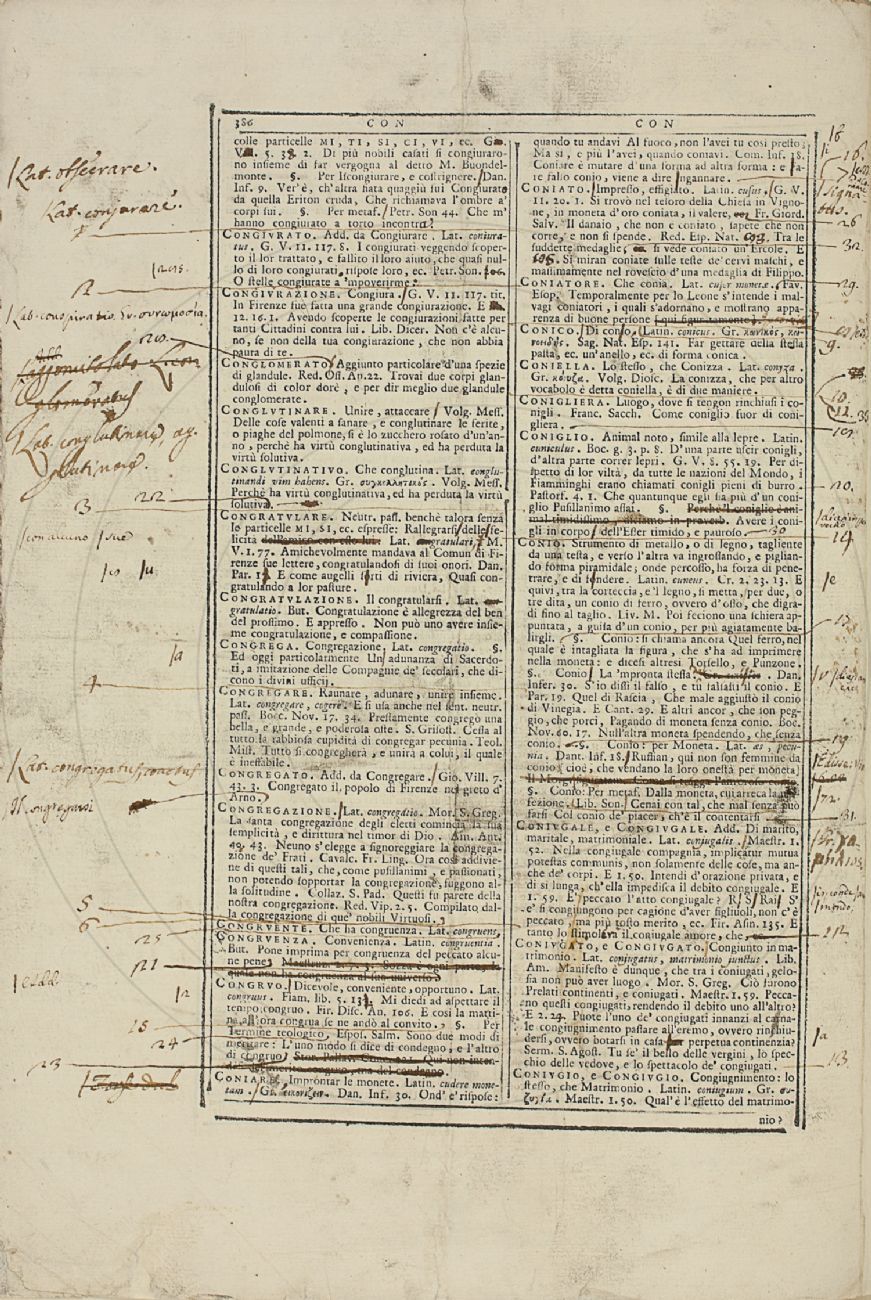 386 CON CON
colle particelle MI, TI, SI, CI, VI, ec. G.
V. 5. 38. 2. Di più nobili casati si congiuraro-
no insieme di far vergogna al detto M. Buondel-
monte. §. Per Iscongiurare, e costrignere. Dan.
Inf. 9. Ver'è, ch'altra fiata quaggiù fui Congiurato
da quella Eriton cruda, Che richiamava l'ombre a'
corpi sui. §. Per metaf. Petr. Son 44. Che m'
hanno congiurato a torto incontra?
CONGIURATO. Add. da Congiurare. Lat. coniura-
tus. G. V. 11. 117. 8. I congiurati veggendo scoper-
to il lor trattato, e fallito il loro aiuto, che quasi nul-
lo di loro congiurati rispose loro, ec. Petr. Son.
O stelle congiurate a 'mpoverirme?
CONGIURAZIONE. Congiura. G. V. 11. 117. tit.
In Firenze fue fatta una grande congiurazione. E
12. 16. 1. Avendo scoperte le congiurazioni fatte per
tanti Cittadini contra lui. Lib. Dicer. Non c'è alcu-
no, se non della tua congiurazione, che non abbia
paura di te.
CONGLOMERATO. Aggiunto particolare d'una spezie
di glandule. Red. Oss. An. 22. Trovai due corpi glan-
dulosi di color dorè, e per dir meglio due glandule
conglomerate.
CONGLUTINARE. Unire, attaccare. Volg. Mess.
Delle cose valenti a sanare, e conglutinare le ferite,
o piaghe del polmone, si è lo zucchero rosato d'un'an-
no, perchè ha virtù conglutinativa, ed ha perduta la
virtù solutiva.
CONGLUTINATIVO. Che conglutina. Lat. conglu-
tinandi vim habens. Gr. συγκολλητικός. Volg. Mess.
Perchè ha virtù conglutinativa, ed ha perduta la virtù
solutiva.
CONGRATULARE. Neutr. pass. benchè talora senza
le particelle MI, SI, ec. espresse: Rallegrarsi delle fe-
licità dell'amico con esso lui. Lat. congratulari. M.
V. 1. 77. Amichevolmente mandava al Comun di Fi-
renze sue lettere, congratulandosi di suoi onori. Dan.
Par. 18. E come augelli surti di riviera, Quasi con-
gratulando a lor pasture.
CONGRATULAZIONE. Il congratularsi. Lat.
gratulatio. But. Congratulazione è allegrezza del ben
del prossimo. E appresso. Non può uno avere insie-
me congratulazione, e compassione.
CONGREGA. Congregazione. Lat. congregatio. §.
Ed oggi particolarmente Un adunanza di Sacerdo-
ti, a imitazione delle Compagnie de' secolari, che di-
cono i divini ufficj.
CONGREGARE. Raunare, adunare, unire insieme.
Lat. congregare, cogere. E si usa anche nel sent. neutr.
pass. Bocc. Nov. 17. 34. Prestamente congregò una
bella, e grande, e poderosa oste. S. Grisost. Cessa al
tutto la rabbiosa cupidità di congregar pecunia. Teol.
Mist. Tutto si congregherà, e unirà a colui, il quale
è ineffabile.
CONGREGATO. Add. da Congregare. Gio. Vill. 7.
43. 3. Congregato il popolo di Firenze nel greto d'
Arno.
CONGREGAZIONE. Lat. congregatio. Mor. S. Greg.
La santa congregazione degli eletti comincia la sua
semplicità, e dirittura nel timor di Dio. Am. Ant.
43. Neuno s'elegge a signoreggiare la congrega-
zione de' Frati. Cavalc. Fr. Ling. Ora così addivie-
ne di questi tali, che, come pusillanimi, e passionati,
non potendo sopportar la congregazione, fuggono al-
la solitudine. Collaz. S. Pad. Questi fu parete della
nostra congregazione. Red. Vip. 2. 5. Compilato dal-
la congregazione di que' nobili Virtuosi.
CONGRUENTE. Che ha congruenza. Lat. congruens.
CONGRUENZA. Convenienza. Latin. congruentia.
But. Pone imprima per congruenza del peccato alcu-
ne pene.
CONGRUO. Dicevole, conveniente, opportuno. Lat.
congruus. Fiam. lib. 5. 134. Mi diedi ad aspettare il
tempo congruo. Fir. Disc. An. 106. E così la matti-
na all'ora congrua se ne andò al convito. §. Per
Termine teologico. Espos. Salm. Sono due modi di
meritare: L'uno modo si dice di condegno, e l'altro
di congruo.
CONIARE. Improntar le monete. Latin. cudere mone-
tam. Gr. Dan. Inf. 30. Ond' e' rispose:
quando tu andavi Al fuoco, non l'avei tu così presto:
Ma sì, e più l'avei, quando coniavi. Com. Inf. 18.
Coniare è mutare d'una forma ad altra forma: e fa-
re falso conio, viene a dire ingannare.
CONIATO. Impresso, effigiato. Latin. cusus. G. V.
11. 20. 1. Si trovò nel tesoro della Chiesa in Vigno-
ne, in moneta d'oro coniata, il valere, Fr. Giord.
Salv. Il danaio, che non è coniato, sapete che non
corre, e non si spende. Red. Esp. Nat. Tra le
suddette medaglie, si vede coniato un'Ercole. E
Si miran coniate sulle teste de' cervi maschi, e
massimamente nel rovescio d'una medaglia di Filippo.
CONIATORE. Che conia. Lat. cusor monetæ. Fav.
Esop. Temporalmente per lo Leone s'intende i mal-
vagi coniatori, i quali s'adornano, e mostrano appa-
renza di buone persone
CONICO. Di conio. Latin. conicus. Gr. κωνικός,
Sag. Nat. Esp. 141. Far gettare della stessa
palta, ec. un'anello, ec. di forma conica.
CONIELLA. Lo stesso, che Conizza. Lat. conyza.
Gr. κόνυζα. Volg. Diosc. La conizza, che per altro
vocabolo è detta coniella, è di due maniere.
CONIGLIERA. Luogo, dove si tengon rinchiusi i co-
nigli. Franc. Sacch. Come coniglio fuor di coni-
gliera.
CONIGLIO. Animal noto, simile alla lepre. Latin.
cuniculus. Boc. g. 3. p. 8. D'una parte uscir conigli,
d'altra parte correr lepri. G. V. 8. 55. 19. Per di-
spetto di lor viltà, da tutte le nazioni del Mondo, i
Fiamminghi erano chiamati conigli pieni di burro.
Pastorf. 4. 1. Che quantunque egli sia più d'un coni-
glio Pusillanimo assai. §. Perchè 'l coniglio è ani-
mal timidissimo, diciamo in proverb. Avere i coni-
gli in corpo dell'Esser timido, e pauroso.
CONIO. Strumento di metallo, o di legno, tagliente
da una testa, e verso l'altra va ingrossando, e piglian-
do forma piramidale; onde percosso, ha forza di pene-
trare, e di fendere. Latin. cuneus. Cr. 2. 23. 13. E
quivi, tra la corteccia, e 'l legno, si metta, per due, o
tre dita, un conio di ferro, ovvero d'osso, che digra-
di fino al taglio. Liv. M. Poi feciono una schiera ap-
puntata, a guisa d'un conio, per più agiatamente ba-
lirgli. §. Conio: si chiama ancora Quel ferro, nel
quale è intagliata la figura, che s'ha ad imprimere
nella moneta: e dicesi altresì Torsello, e Punzone.
§. Conio. La 'mpronta stessa. Dan.
Infer. 30. S'io dissi il falso, e tu falsasti il conio. E
Par. 19. Quel di Rascia, Che male aggiustò il conio
di Vinegia. E Cant. 29. E altri ancor, che son peg-
gio, che porci, Pagando di moneta senza conio. Boc.
Nov. 60. 17. Null'altra moneta spendendo, che senza
conio. §. Conio: per Moneta. Lat. æs, pecu-
nia. Dant. Inf. 18. Ruffian, qui non son femmine da
conio, cioè, che vendano la loro onestà per moneta
§. Conio: Per metaf. Dalla moneta, cui arreca la
fezione. Lib. Son. Cenai con tal, che mal senza può
farsi Col conio de' piacer, ch'è il contentarsi
CONIUGALE, e CONGIUGALE. Add. Di marito,
maritale, matrimoniale. Lat. conjugalis. Maestr. 1.
52. Nella congiugale compagnia, implicatur mutua
potestas communis, non solamente delle cose, ma an-
che de' corpi. E 1. 50. Intendi d'orazione privata, e
di si lunga, ch'ella impedisca il debito congiugale. E
1. 59. E' peccato l'atto congiugale? R. S. Rai. S'
e' si congiungono per cagione d'aver figliuoli, non c'è
peccato, ma più tosto merito, ec. Fir. Asin. 135. E
tanto lo stimolava il conjugale amore, che
CONIUGATO, e CONGIUGATO. Congiunto in ma-
trimonio. Lat. conjugatus, matrimonio junctus. Lib.
Am. Manifesto è dunque, che tra i conjugati, gelo-
sia non può aver luogo. Mor. S. Greg. Ciò furono
Prelati continenti, e conjugati. Maestr. 1. 59. Pecca-
no questi congiugati, rendendo il debito uno all'altro?
E 2. 24. Puote l'uno de' congiugati innanzi al carna-
le congiugnimento passare all'eremo, ovvero rinchiu-
dersi, ovvero botarsi in casa perpetua continenzia?
Serm. S. Agost. Tu se' il bello delle vergini, lo spec-
chio delle vedove, e lo spettacolo de' congiugati.
CONIUGIO, e CONGIUGIO. Congiugnimento: lo
stesso, che Matrimonio. Latin. conjugium. Gr. συ-
ζυγία. Maestr. 1. 50. Qual'è l'effetto del matrimo-
nio?
Lat. obsecrare.
Lat. conjurare.
2
Lat. conglutinare, ag-
glutinare.
3 22
4
Lat. congregatus, coactus
5
6
25
21
15
24
23
16.
26
32.
29.
9.
10.
12.
20.
30
14
19
31.
212
13.